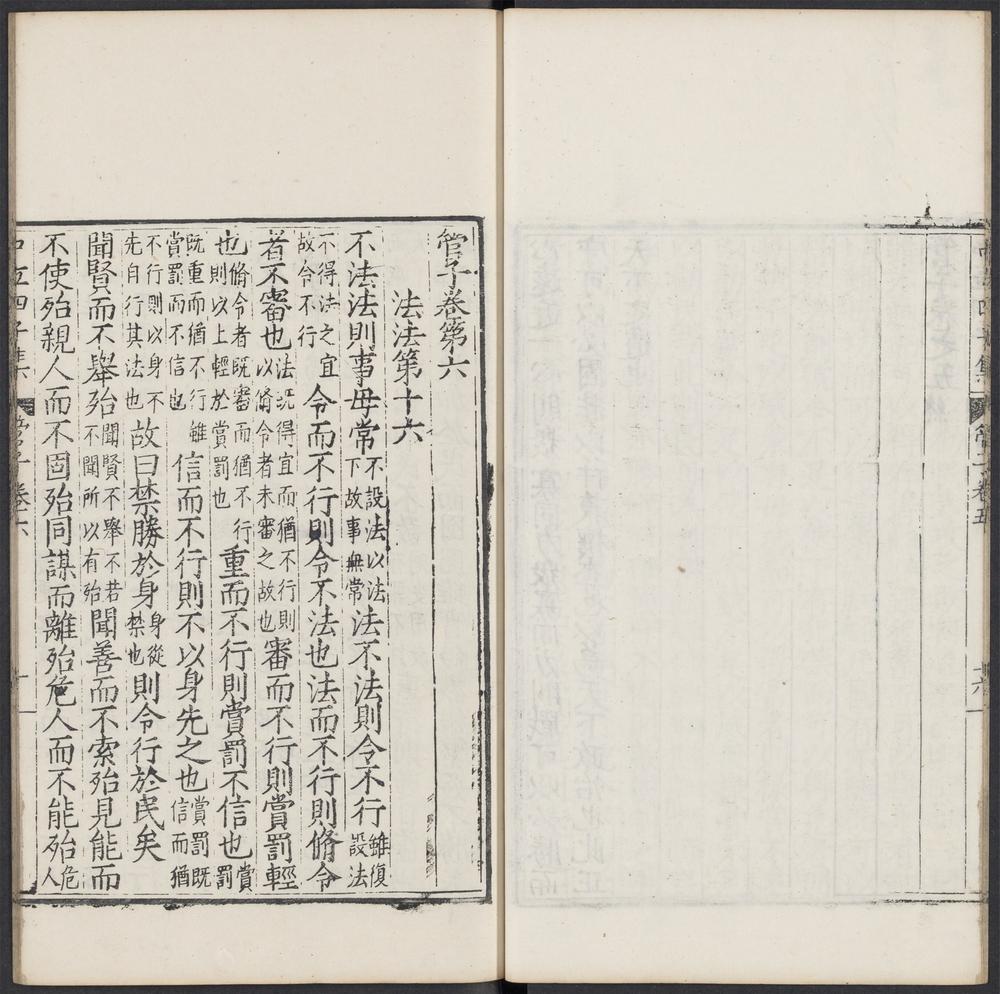 四子集 管子卷五 十六
管子卷第六
法法第十六
不法法則事毋常不設法以法下故事無常法不法則令不行雖復設法
不得法之宜故令不行令而不行則令不法也法而不行則脩令
者不審也法既得宜而猶不行則以脩令者未審之故也審而不行則賞罰輕
也脩令者既審而猶不行則以上輕於賞罰也重而不行則賞罰不信也賞罰
既重而猶不行雖賞罰而不信也信而不行則不以身先之也賞罰既信而猶
不行則以身不先自行其法也故曰禁勝於身身從禁也則令行於民矣
聞賢而不舉殆聞賢不舉不若不聞所以有殆聞善而不索殆見能而
不使殆親人而不固殆同謀而離殆危人而不能殆危人
中立四子集 管子卷六 一